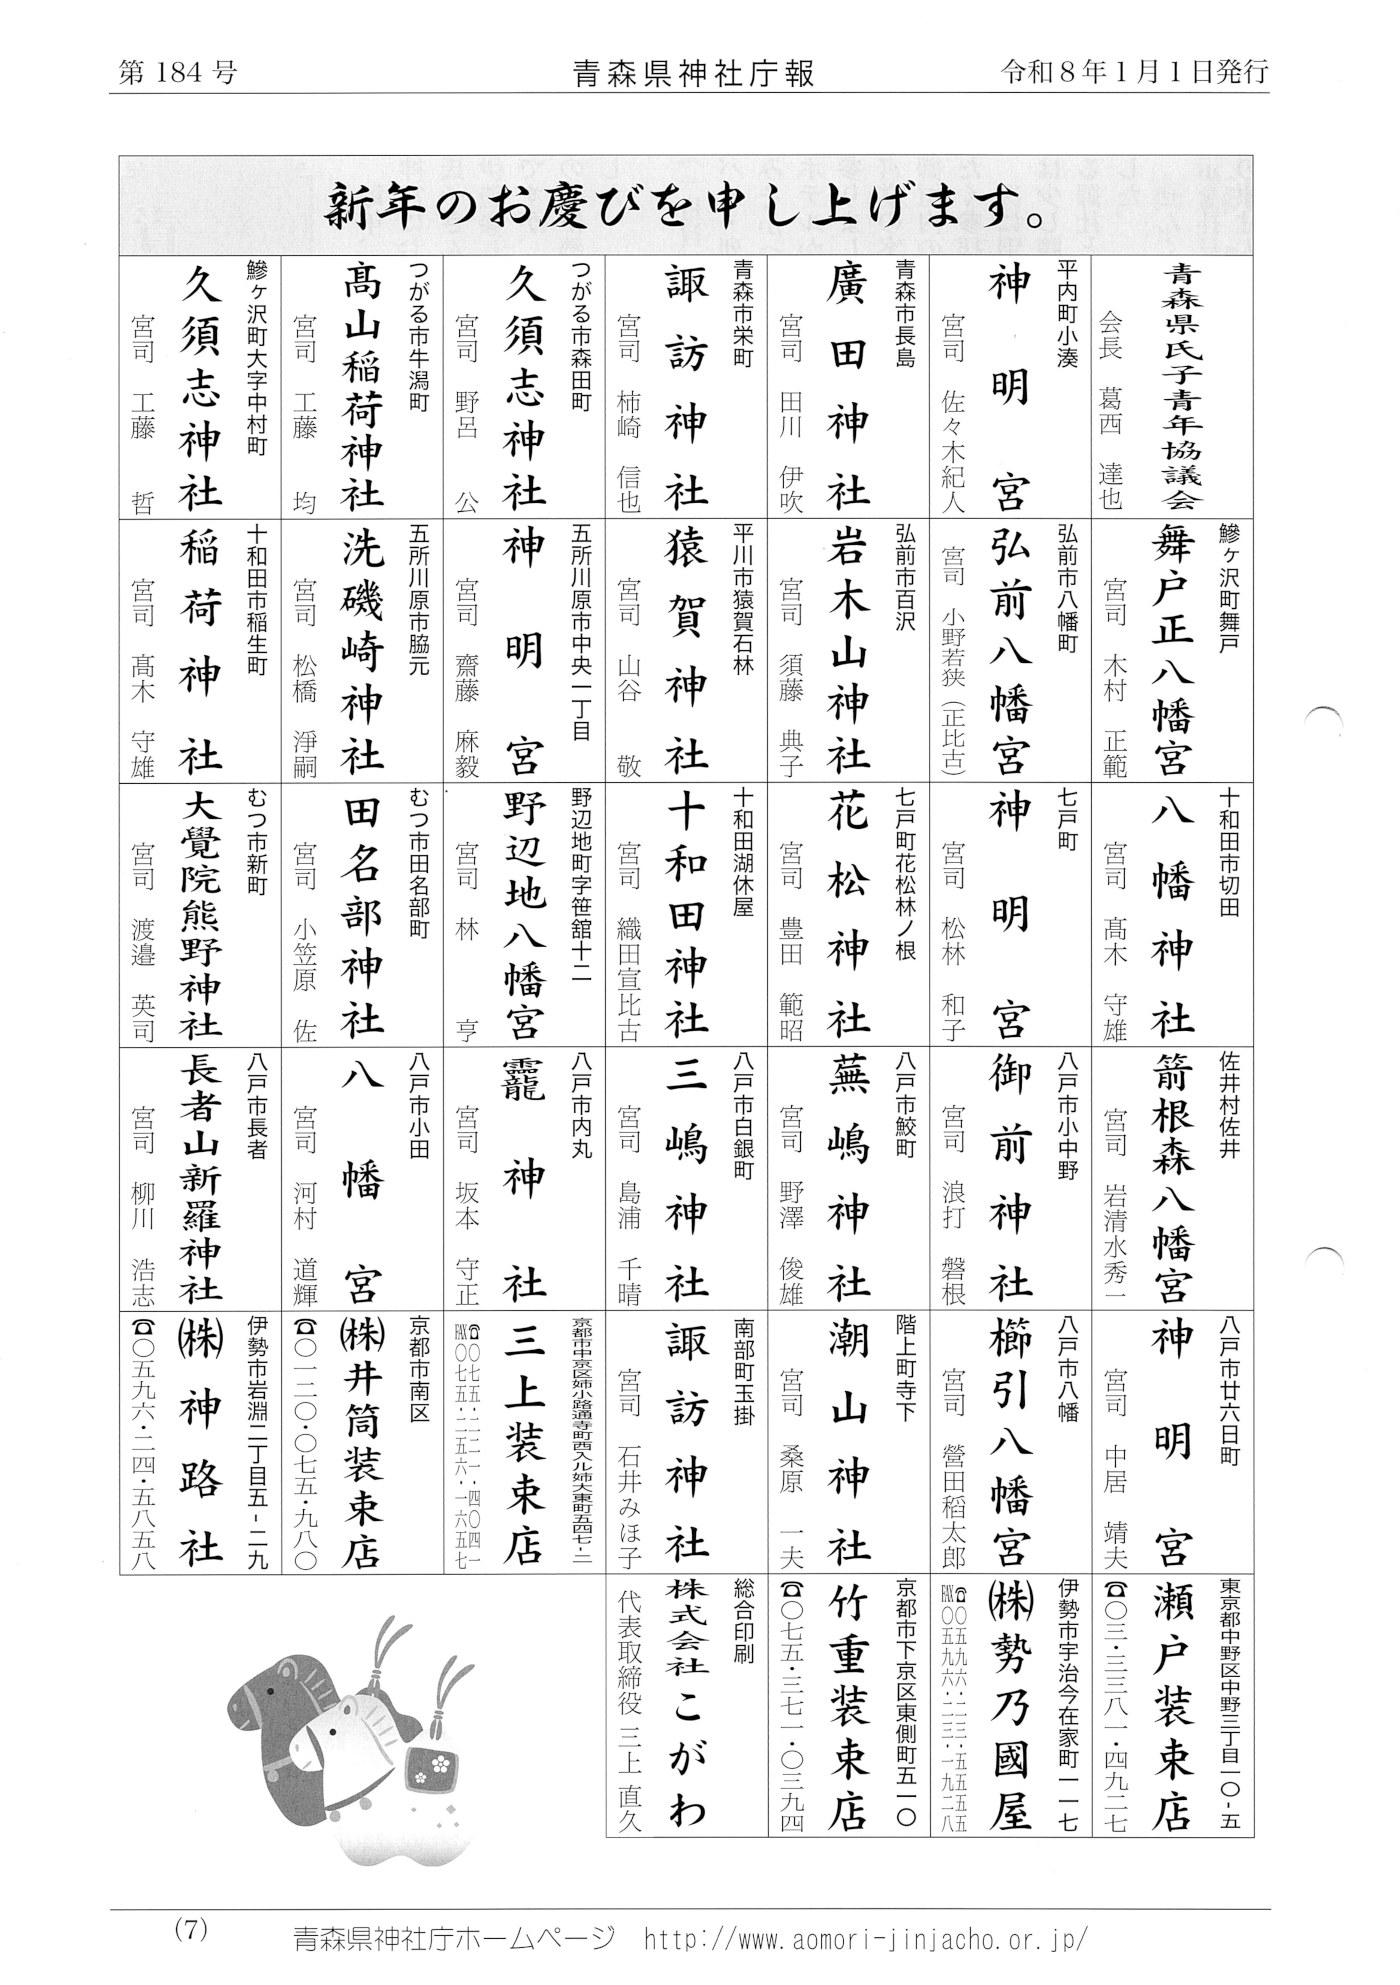 第184号
青森県神社庁報
令和8年1月1日発行
新年のお慶びを申し上げます。
青森県氏子青年協議会
会長 葛西 達也
平内町小湊
神明宮
宮司 佐々木紀人
青森市長島
廣田神社
宮司 田川 伊吹
青森市栄町
諏訪神社
宮司 柿崎 信也
つがる市森田町
久須志神社
宮司 野呂 公
つがる市牛潟町
髙山稲荷神社
宮司 工藤 均
鰺ヶ沢町大字中村町
久須志神社
宮司 工藤 哲
鰺ヶ沢町舞戸
舞戸正八幡宮
宮司 木村 正範
弘前市八幡町
弘前八幡宮
宮司 小野若狭(正比古)
弘前市百沢
岩木山神社
宮司 須藤 典子
平川市猿賀石林
猿賀神社
宮司 山谷 敬
五所川原市中央一丁目
神明宮
宮司 齋藤 麻毅
五所川原市脇元
洗磯崎神社
宮司 松橋 淨嗣
十和田市稲生町
稲荷神社
宮司 髙木 守雄
十和田市切田
八幡神社
宮司 髙木 守雄
七戸町
神明宮
宮司 松林 和子
七戸町花松林ノ根
花松神社
宮司 豊田 範昭
十和田湖休屋
十和田神社
宮司 織田宣比古
野辺地町字笹舘十二
野辺地八幡宮
宮司 林 亨
むつ市田名部町
田名部神社
宮司 小笠原 佐
むつ市新町
大覺院熊野神社
宮司 渡邉 英司
佐井村佐井
箭根森八幡宮
宮司 岩清水秀一
八戸市小中野
御前神社
宮司 浪打 磐根
八戸市鮫町
蕪嶋神社
宮司 野澤 俊雄
八戸市白銀町
三嶋神社
宮司 島浦 千晴
八戸市内丸
龗神社
宮司 坂本 守正
八戸市小田
八幡宮
宮司 河村 道輝
八戸市長者
長者山新羅神社
宮司 柳川 浩志
八戸市廿六日町
神明宮
宮司 中居 靖夫
八戸市八幡
櫛引八幡宮
宮司 營田稻太郎
階上町寺下
潮山神社
宮司 桑原 一夫
南部町玉掛
諏訪神社
宮司 石井みほ子
京都市中京区姉小路通寺町西入ル姉大東町五四七-二
三上装束店
☎〇七五・二二一・四〇四一
FAX〇七五・二五六・一六五七
京都市南区
㈱井筒装束店
☎〇一二〇・〇七五・九八〇
伊勢市岩淵二丁目五-二九
㈱神路社
☎〇五九六・二四・五八五八
東京都中野区中野三丁目一〇-五
瀬戸装束店
☎〇三・三三八一・四九二七
伊勢市宇治今在家町一一七
㈱勢乃國屋
☎〇五九六・二三・五五五五
FAX〇五九六・二二・一九二八
京都市下京区東側町五一〇
竹重装束店
☎〇七五・三七一・〇三九四
総合印刷
株式会社こがわ
代表取締役 三上 直久
(7)
青森県神社庁ホームページ http://www.aomori-jinjacho.or.jp/